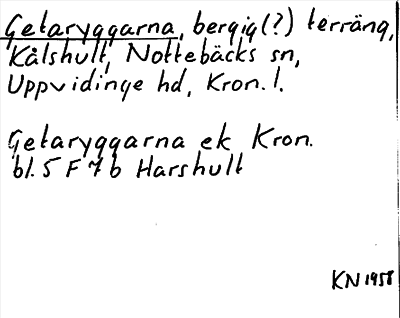 Getaryggarna, bergig(?) terräng,
Kålshult, Nottebäcks sn,
Uppvidinge hd, Kron. l.
Getaryggarna ek Kron.
bl. 5 F 7 b Harshult
KN 1958